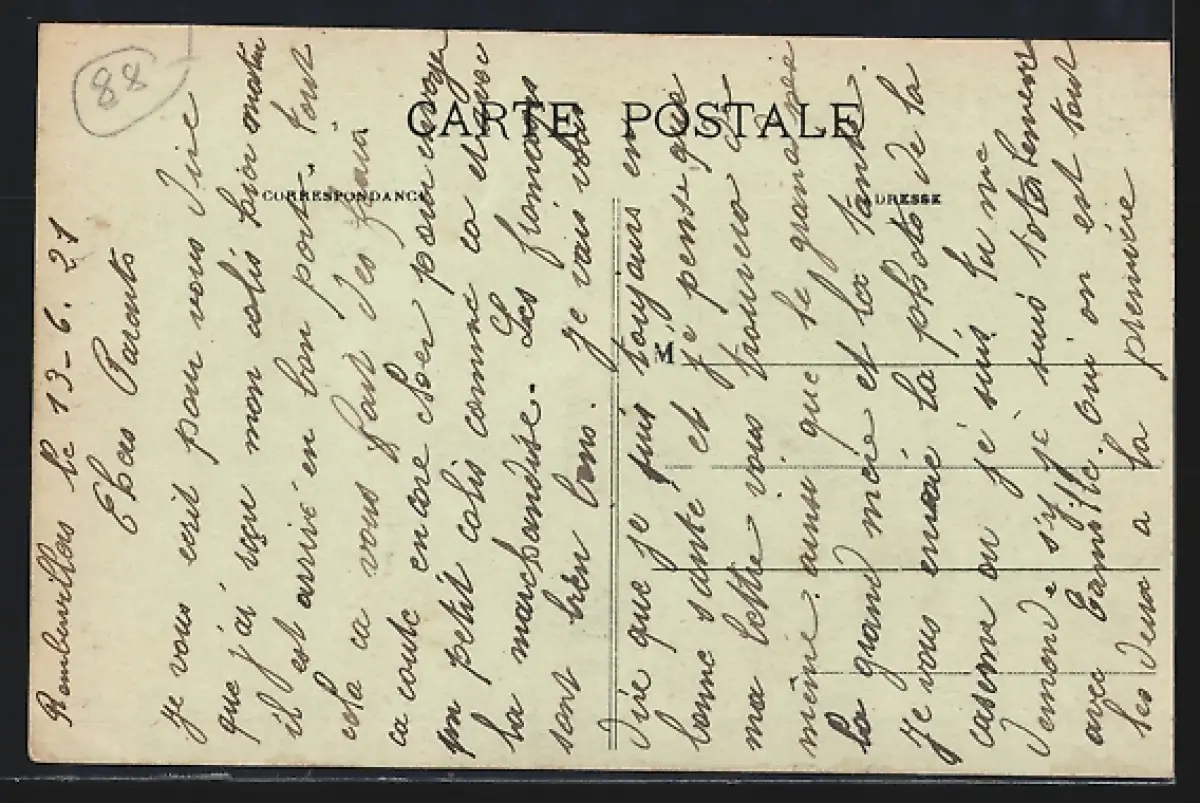 88
CARTE POSTALE
CORRESPONDANCE
ADRESSE
M
Rambervillers le 13-6. 21
Chers Parents
je vous ecrit pour vous dire
que j'ai reçu mon colis hier matin
il est arrivé en bon port. tout
cela ca vous fait des frais
ca coute encore cher pour envoyer
un petit colis comme ca et puis
la marchandise. Les fromages
sont bien bons. je vais vous
dire que je suis toujours en
bonne santé et je pense que
ma lettre vous trouvera de
même. ainsi que le grand père
la grand mère et la tante.
je vous envoie la photo de la
caserne ou je suis. tu me
demande s'y je suis toter
avec Camille. oui on est tout
les deux a la première